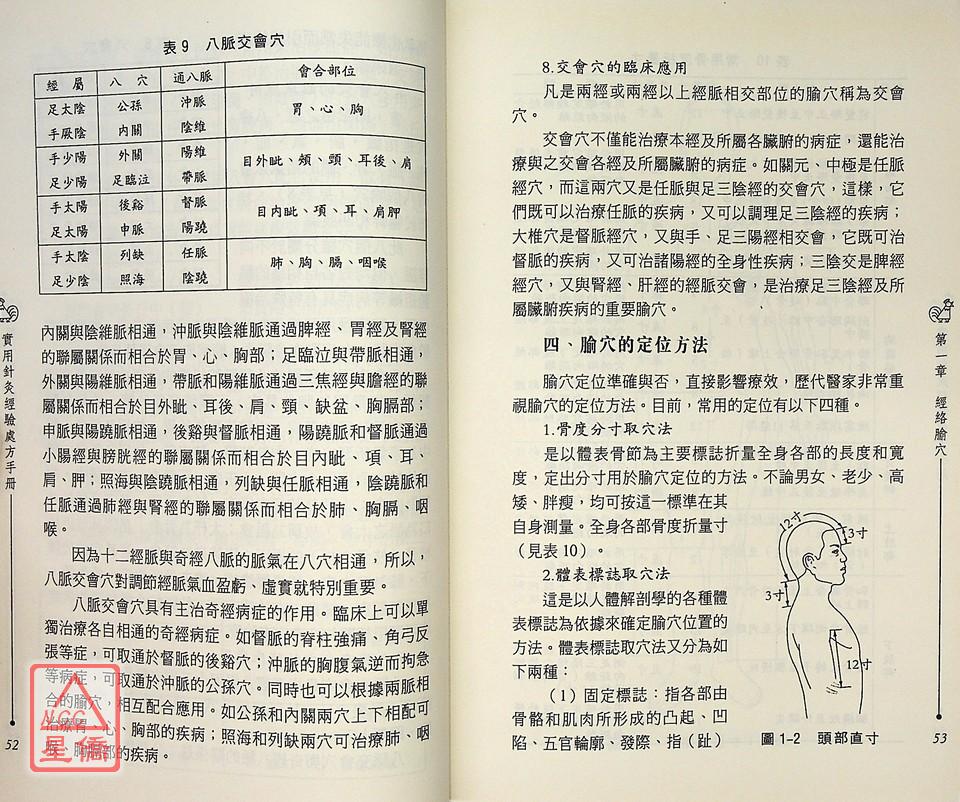 表9 八脈交會穴
經屬 八穴 通八脈 會合部位
足太陰 公孫 沖脈 胃、心、胸
手厥陰 內關 陰維
手少陽 外關 陽維 目外眦、頰、頸、耳後、肩
足少陽 足臨泣 帶脈
手太陽 後谿 督脈 目內眦、項、耳、肩胛
足太陽 申脈 陽蹺
手太陰 列缺 任脈 肺、胸、膈、咽喉
足少陰 照海 陰蹺
內關與陰維脈相通，沖脈與陰維脈通過脾經、胃經及腎經
的聯屬關係而相合於胃、心、胸部；足臨泣與帶脈相通，
外關與陽維脈相通，帶脈和陽維脈通過三焦經與膽經的聯
屬關係而相合於目外眦、耳後、肩、頸、缺盆、胸膈部；
申脈與陽蹺脈相通，後谿與督脈相通，陽蹺脈和督脈通過
小腸經與膀胱經的聯屬關係而相合於目內眦、項、耳、
肩、胛；照海與陰蹺脈相通，列缺與任脈相通，陰蹺脈和
任脈通過肺經與腎經的聯屬關係而相合於肺、胸膈、咽
喉。
因為十二經脈與奇經八脈的脈氣在八穴相通，所以，
八脈交會穴對調節經脈氣血盈虧、虛實就特別重要。
八脈交會穴具有主治奇經病症的作用。臨床上可以單
獨治療各自相通的奇經病症。如督脈的脊柱強痛、角弓反
張等症，可取通於督脈的後谿穴；沖脈的胸腹氣逆而拘急
等病症，可取通於沖脈的公孫穴。同時也可以根據兩脈相
合的腧穴，相互配合應用。如公孫和內關兩穴上下相配可
治療胃、心、胸部的疾病；照海和列缺兩穴可治療肺、咽
喉、胸膈部的疾病。
實用針灸經驗處方手冊
52
NGC
星僑
8.交會穴的臨床應用
凡是兩經或兩經以上經脈相交部位的腧穴稱為交會
穴。
交會穴不僅能治療本經及所屬各臟腑的病症，還能治
療與之交會各經及所屬臟腑的病症。如關元、中極是任脈
經穴，而這兩穴又是任脈與足三陰經的交會穴，這樣，它
們既可以治療任脈的疾病，又可以調理足三陰經的疾病；
大椎穴是督脈經穴，又與手、足三陽經相交會，它既可治
督脈的疾病，又可治諸陽經的全身性疾病；三陰交是脾經
經穴，又與腎經、肝經的經脈交會，是治療足三陰經及所
屬臟腑疾病的重要腧穴。
四、腧穴的定位方法
腧穴定位準確與否，直接影響療效，歷代醫家非常重
視腧穴的定位方法。目前，常用的定位有以下四種。
1.骨度分寸取穴法
是以體表骨節為主要標誌折量全身各部的長度和寬
度，定出分寸用於腧穴定位的方法。不論男女、老少、高
矮、胖瘦，均可按這一標準在其
自身測量。全身各部骨度折量寸
（見表10）。
2.體表標誌取穴法
這是以人體解剖學的各種體
表標誌為依據來確定腧穴位置的
方法。體表標誌取穴法又分為如
下兩種：
（1）固定標誌：指各部由
骨骼和肌肉所形成的凸起、凹
陷、五官輪廓、發際、指（趾）
12寸
3寸
3寸
12寸
圖1-2 頭部直寸
第一章 經絡腧穴
53